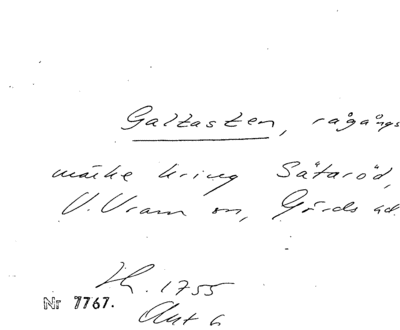 Galtasten, rågångs
märke kring Sätaröd,
V. Vram sn, Gärds hd.
Nr 7767.
1755
Akt 6